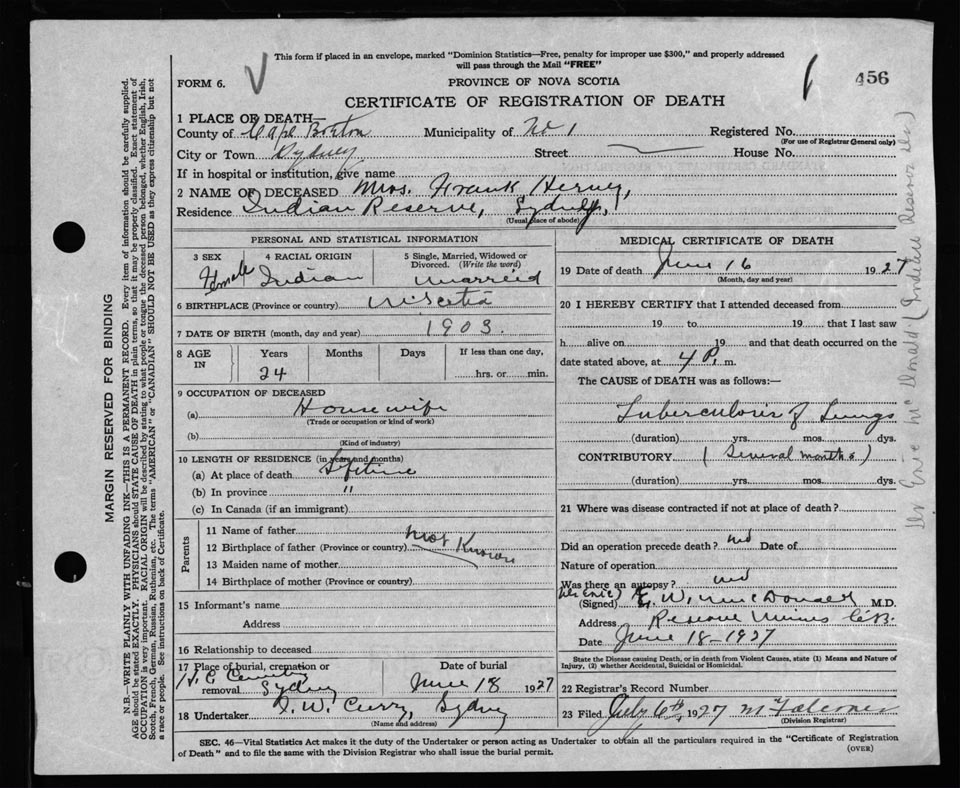 This form if placed in an envelope, marked "Dominion Statistics—Free, penalty for improper use $300," and properly addressed
will pass through the Mail "FREE"
FORM 6.
PROVINCE OF NOVA SCOTIA
456
CERTIFICATE OF REGISTRATION OF DEATH
1 PLACE OF DEATH—
County of Cape Breton Municipality of No 1 Registered No.
(For use of Registrar General only)
City or Town Sydney Street House No.
If in hospital or institution, give name
2 NAME OF DECEASED Mrs. Frank Herney,
Residence Indian Reserve, Sydney,
(Usual place of abode)
PERSONAL AND STATISTICAL INFORMATION
3 SEX
Female
4 RACIAL ORIGIN
Indian
5 Single, Married, Widowed or
Divorced. (Write the word)
Married
6 BIRTHPLACE (Province or country) N. Scotia
7 DATE OF BIRTH (month, day and year) 1903.
8 AGE
IN
Years
24
Months
Days
If less than one day,
hrs. or min.
9 OCCUPATION OF DECEASED
(a) Housewife
(Trade or occupation or kind of work)
(b)
(Kind of industry)
10 LENGTH OF RESIDENCE (in years and months)
(a) At place of death Lifetime
(b) In province "
(c) In Canada (if an immigrant)
Parents
11 Name of father
12 Birthplace of father (Province or country)
Not Known
13 Maiden name of mother
14 Birthplace of mother (Province or country)
15 Informant's name
Address
16 Relationship to deceased
17 Place of burial, cremation or
removal
Cemetery
Sydney
Date of burial
June 18 1927
18 Undertaker Curry, Sydney
(Name and address)
MEDICAL CERTIFICATE OF DEATH
19 Date of death June 16 1927
(Month, day and year)
20 I HEREBY CERTIFY that I attended deceased from
19 to 19 that I last saw
h alive on 19 and that death occurred on the
date stated above, at 4 P. m.
The CAUSE of DEATH was as follows:—
Tuberculosis of Lungs
(duration) yrs. mos. dys.
CONTRIBUTORY (Several months)
(duration) yrs. mos. dys.
21 Where was disease contracted if not at place of death?
Did an operation precede death? no Date of
Nature of operation
Was there an autopsy? no
(Signed) E. W. MacDonald M.D.
Address Reserve Mines C.B.
Date June 18-1927
State the Disease causing Death, or in death from Violent Causes, state (1) Means and Nature of
Injury, (2) whether Accidental, Suicidal or Homicidal.
22 Registrar's Record Number
23 Filed July 6th, 1927
(Division Registrar)
SEC. 46—Vital Statistics Act makes it the duty of the Undertaker or person acting as Undertaker to obtain all the particulars required in the "Certificate of Registration
of Death" and to file the same with the Division Registrar who shall issue the burial permit.
(OVER)
MARGIN RESERVED FOR BINDING
N.B.—WRITE PLAINLY WITH UNFADING INK—THIS IS A PERMANENT RECORD. Every item of information should be carefully supplied.
AGE should be stated EXACTLY. PHYSICIANS should STATE CAUSE OF DEATH in plain terms, so that it may be properly classified. Exact statement of
OCCUPATION is very important. RACIAL ORIGIN will be described by stating to what people or tongue the deceased person belonged, whether English, Irish,
Scotch, French, German, Russian, Ruthenian, etc. The terms "AMERICAN" or "CANADIAN" SHOULD NOT BE USED as they express citizenship but not
a race or people. See instructions on back of Certificate.
Dr Eric McDonald (Indian Reserve